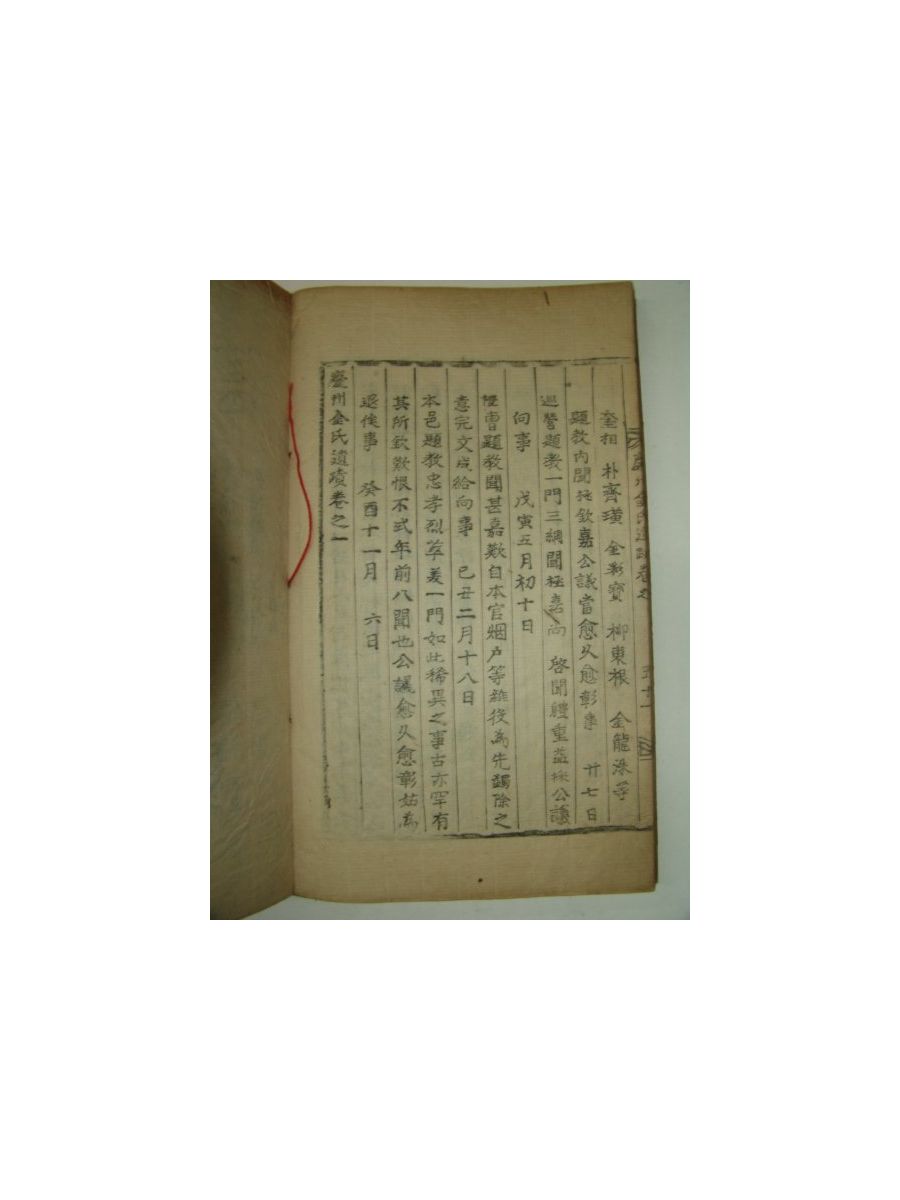 奎相 朴齊璜 金彩寶 柳東根 金龍洙等
題教內聞極欽嘉公議當愈久愈彰事 廿七日
巡營題教一門三綱聞極嘉尚 啓聞軆重益採公議
向事 戊寅五月初十日
禮曹題教聞甚嘉歎自本官烟戶等雜役為先蠲除之
意完文成給向事 己丑二月十八日
本邑題教忠孝烈萃美一門如此稀異之事古亦罕有
其所欽歎恨不式年前八聞也公議愈久愈彰姑為
退俟事 癸酉十一月 六日
慶州金氏遺蹟卷之一